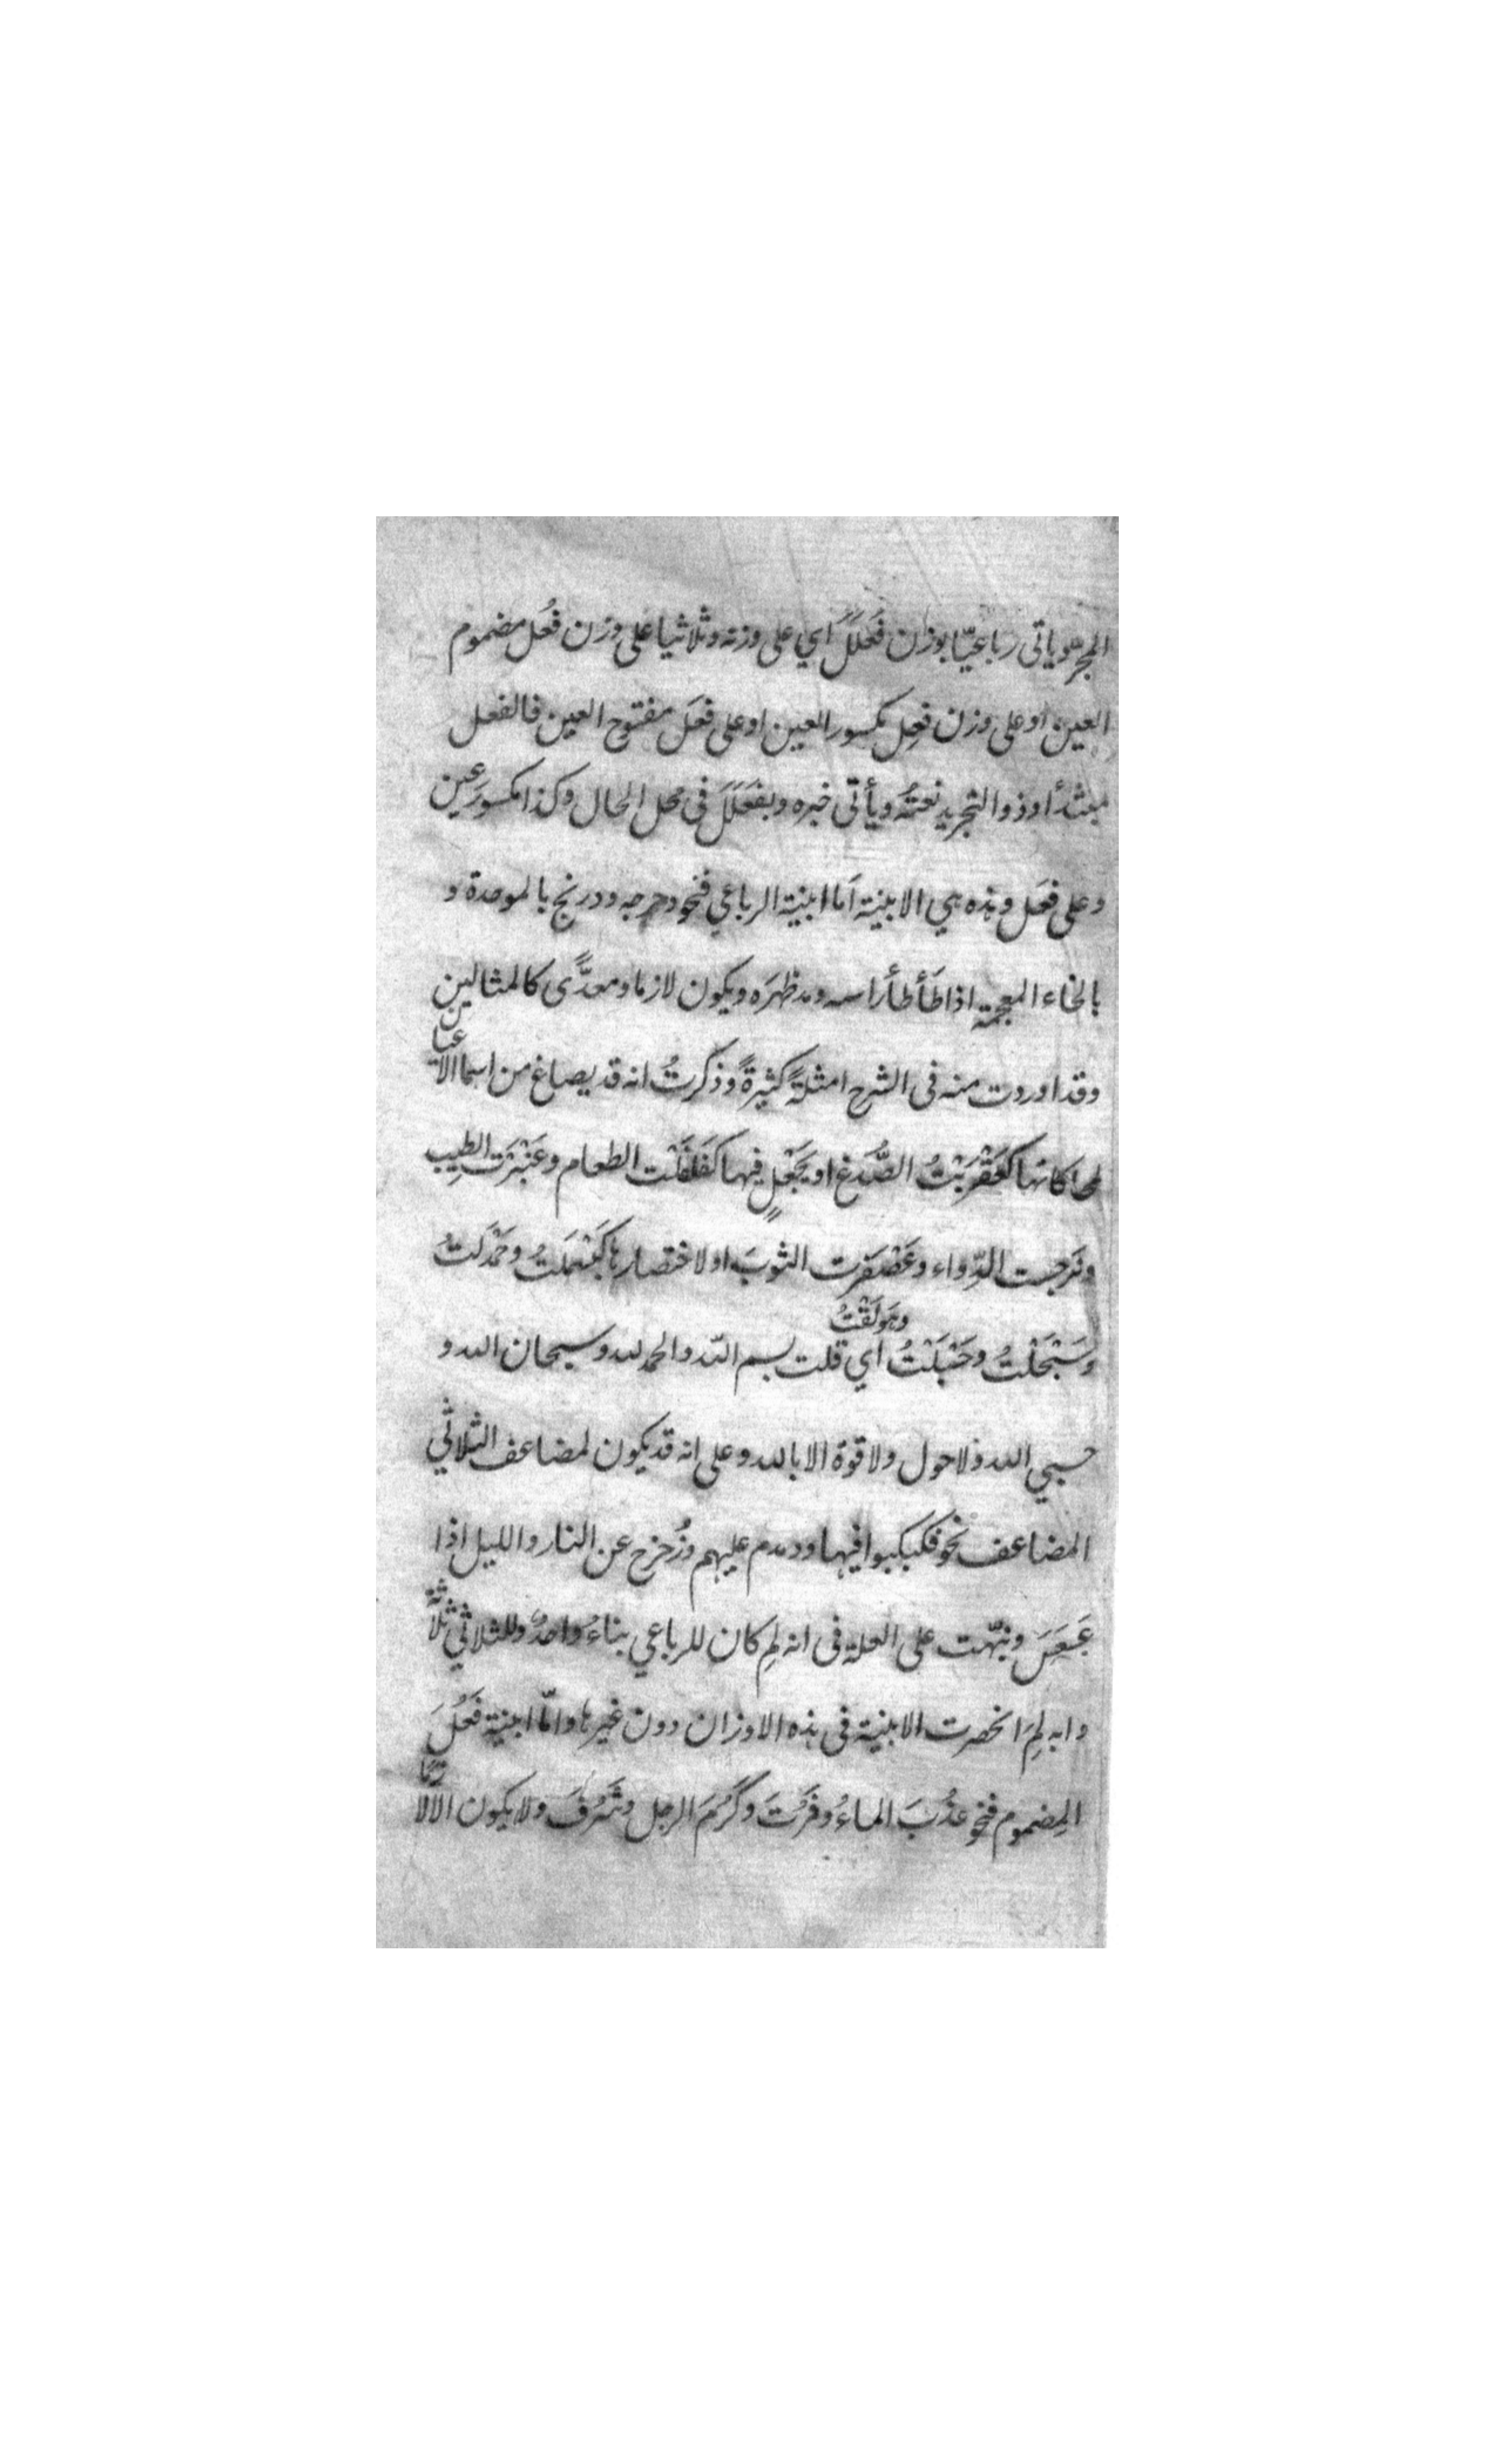 المجرد ياتى رباعيّا بوزن فَعْلَلَ اي على وزنه وثلاثيا على وزن فعُل مضموم
العين او على وزن فعِل مكسور العين او على فعَل مفتوح العين فالفعل
مبتدأ وذو التجريد نعتُهُ ويأتى خبره وبفَعْلَلَ فى محل الحال وكذا مكسور عين
وعلى فعَل وهذه هي الابنية اَما ابنية الرباعي فنحو دحرجه ودربخ بالموحدة و
بالخاء المعجمة اذا طَأطأ راسه ومد ظهرَه ويكون لازما ومعدًّى كالمثالين
وقد اوردت منه فى الشرح امثلةً كثيرةً وذكرتُ انه قد يصاغ من اسما الاعيا
ن
لمحاكاتها كعَقْرَبْتُ الصُّدغ او يجَعْلٍ فيها كفَلفَلْت الطعام وعَنْبَرْت الطِيب
ونَرجست الدِّواء وعَصْفَرت الثوبَ او لاختصارها كبَسْمَلتُ وحَمْدَلتُ
وسَبْحَلْتُ وحَسْبَلْتُ وحَولَقْتُ اي قلت بسم الله والحمد لله وسبحان الله و
حسبي الله ولا حول ولا قوة الا بالله وعلى انه قد يكون لمضاعف الثلاثي
المضاعف نحو فكبكبوا فيها ودمدم عليهم وزُحزح عن النار والليل اذا
عَسعَسَ ونبّهت على العلة فى انه لِم كان للرباعي بناءُ واحدُ وللثلاثي ثلاثة
وانه لِمَ انحصرت الابنية فى هذه الاوزان دون غيرها وامّا ابنية فَعُلَ
المضموم فنحو عذُبَ الماءُ وفَرُتَ وكَرُمَ الرجل وشَرُفَ ولا يكون الا لازما